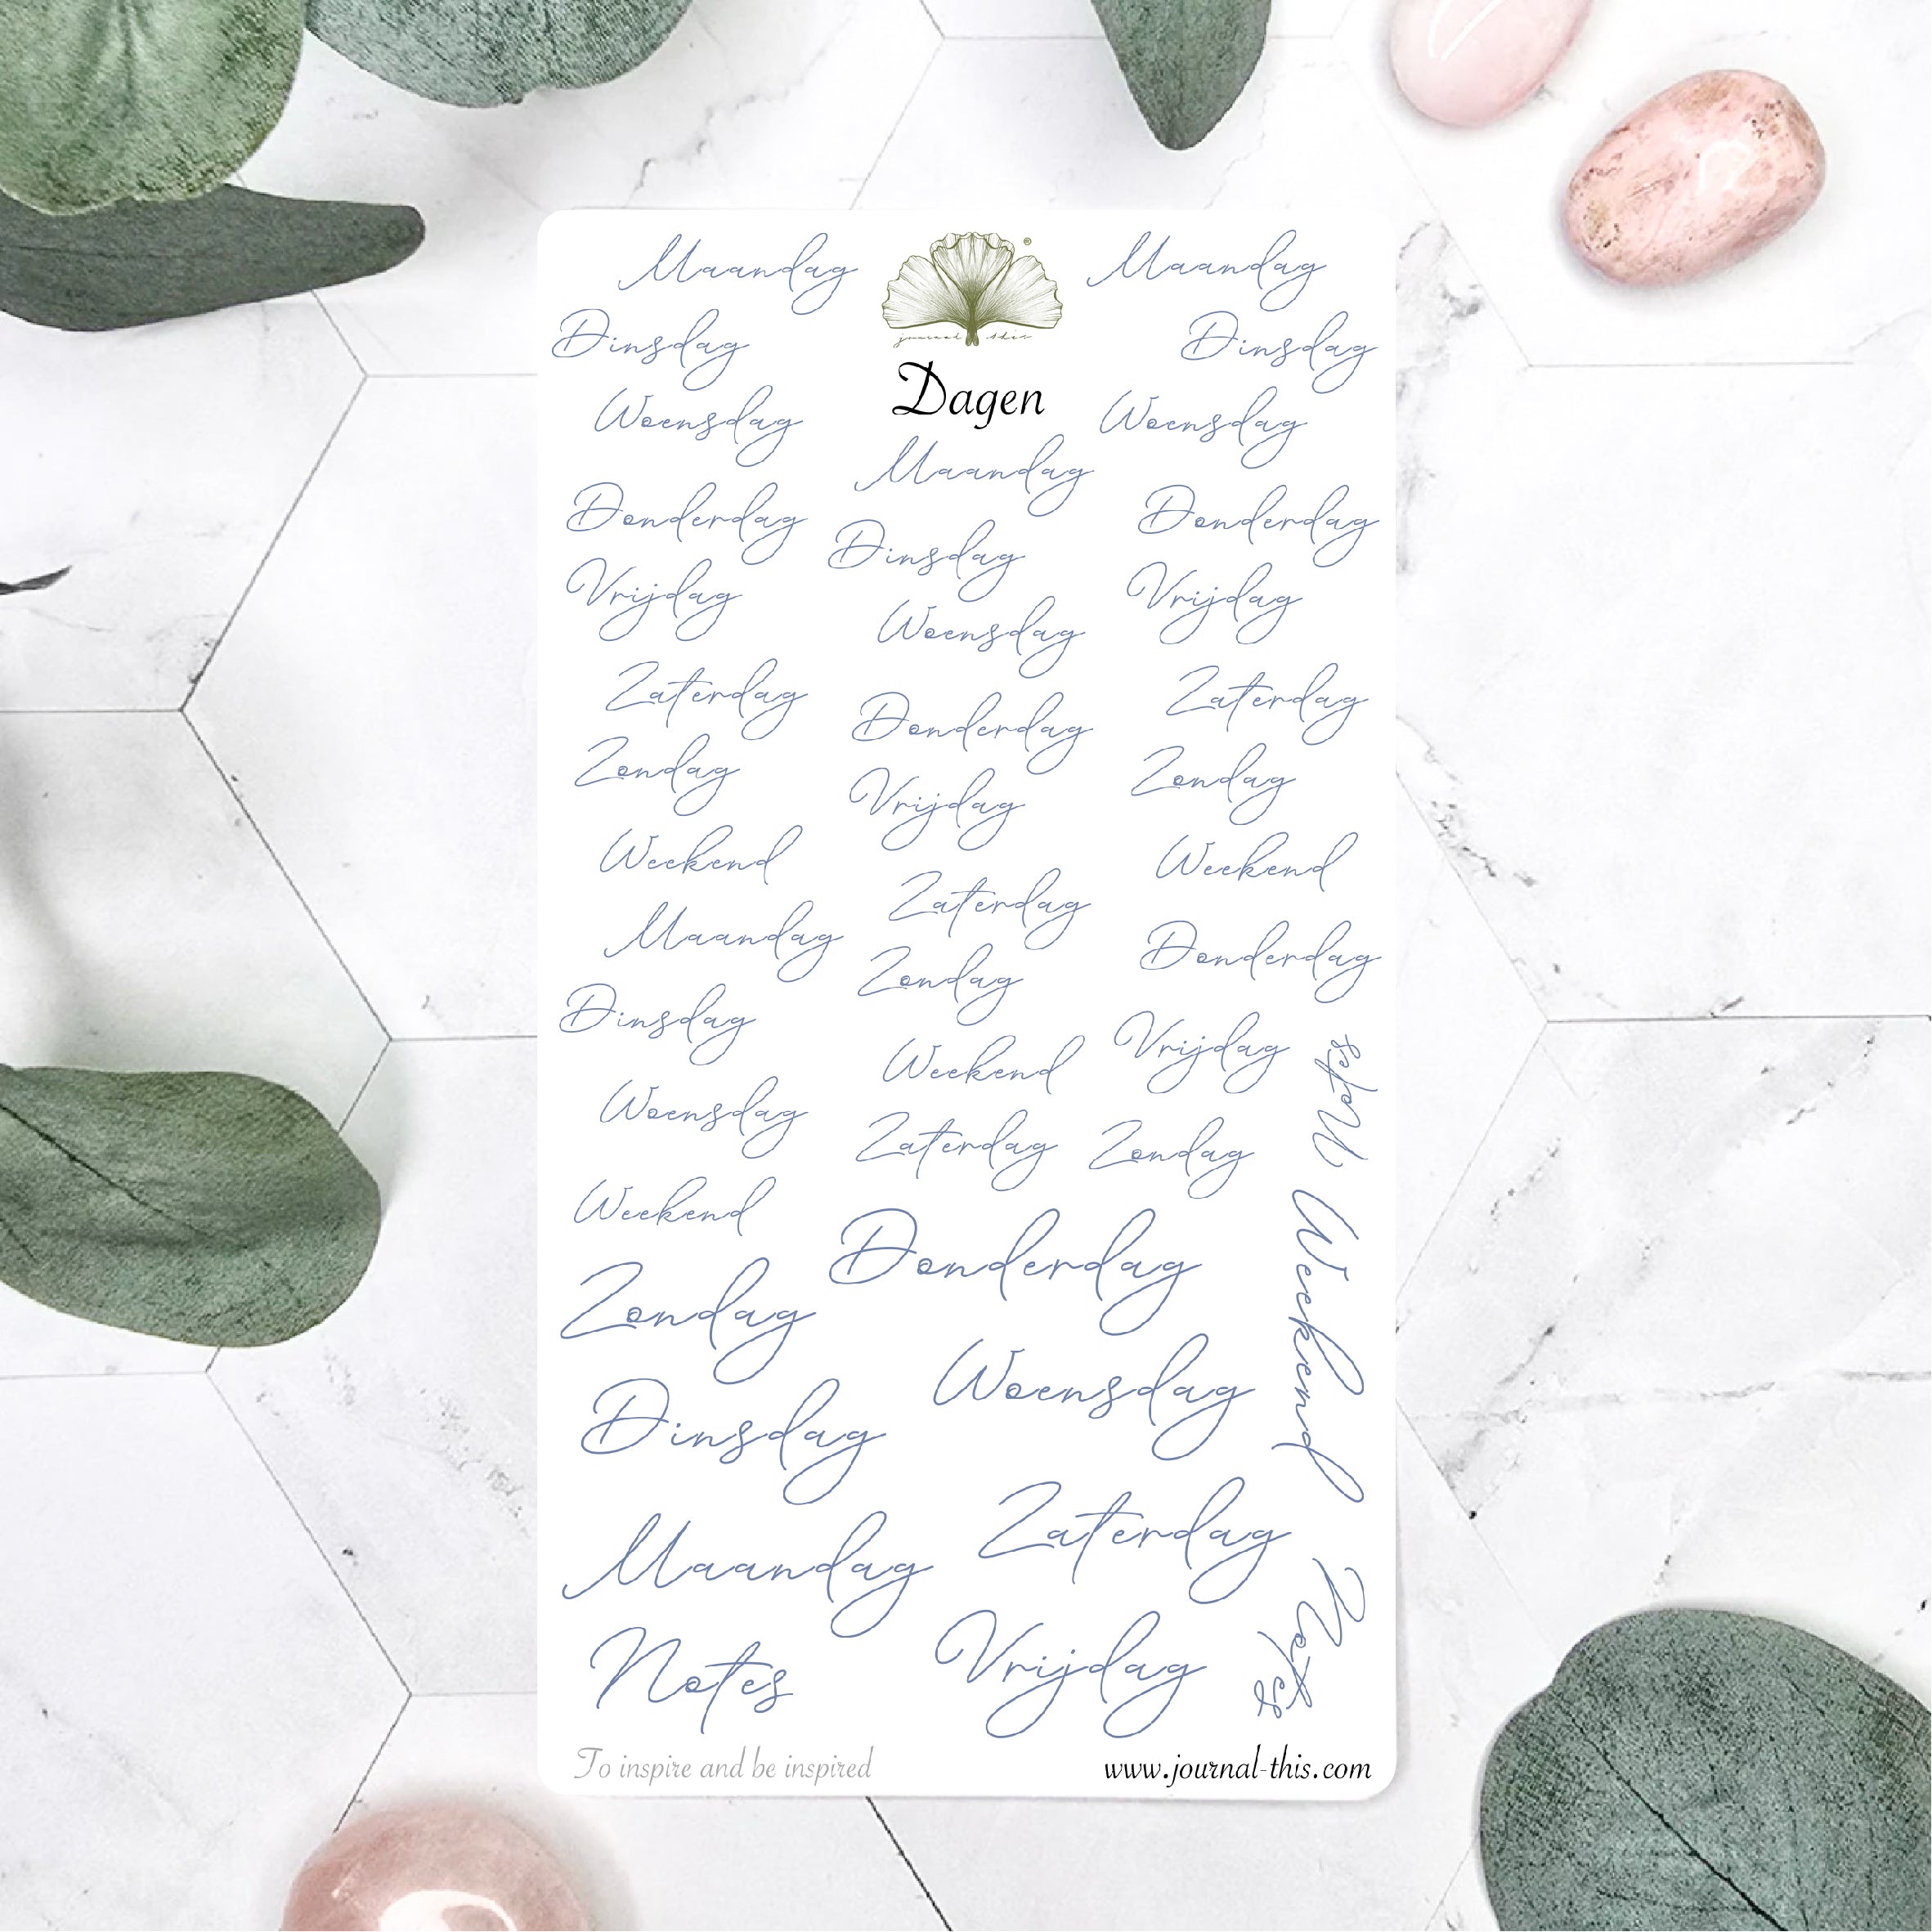 Maandag Maandag
®
journal this
Dinsdag Dinsdag
Dagen
Woensdag Woensdag
Maandag
Donderdag Donderdag
Dinsdag
Vrijdag Vrijdag
Woensdag
Zaterdag Zaterdag
Donderdag
Zondag Zondag
Vrijdag
Weekend Weekend
Zaterdag
Maandag Donderdag
Zondag
Dinsdag
Weekend Vrijdag
Notes
Woensdag
Zaterdag Zondag
Weekend
Donderdag
Weekend
Zondag
Woensdag
Dinsdag
Zaterdag
Maandag
Notes
Vrijdag
Notes
To inspire and be inspired
www.journal-this.com